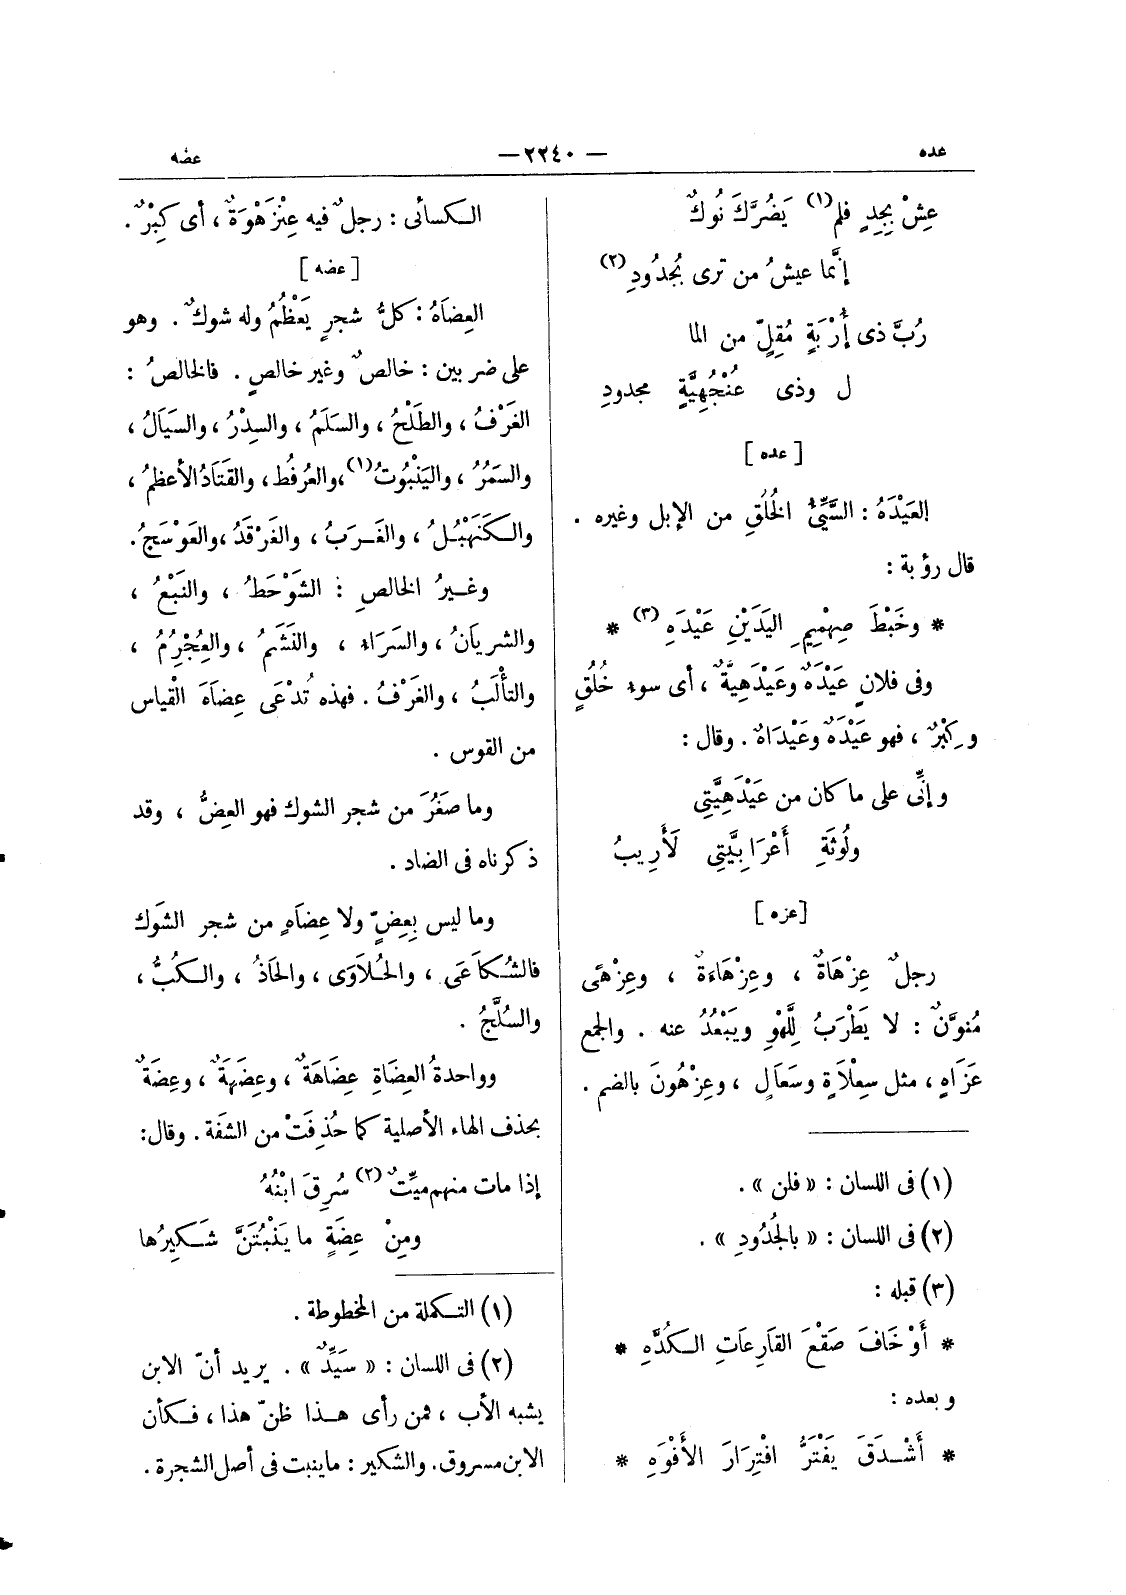 عده
— ٢٢٤٠ —
عضه
عِشْ بِجِدٍ فلم (١) يَضُرَّكَ نُوكٌ
إنَّما عيشُ من ترى بُجُدُودِ (٢)
رُبَّ ذى أُرْبَةٍ مُقِلٍّ من الما
ل وذى عُنْجُهِيَّةٍ مجدودِ
[ عده ]
العَيْدَهُ : السَّيِّئُ الخُلُقِ من الإبل وغيره .
قال رؤبة :
* وخَبْطَ صِهْمِيمِ اليَدَيْنِ عَيْدَهِ (٣) *
وفى فلانٍ عَيْدَهٌ وعَيْدَهِيَّةٌ ، أى سوء خُلُقٍ
وكِبْرٌ ، فهو عَيْدَهٌ وعَيْدَاهٌ . وقال :
وإنِّى على ما كان من عَيْدَهِيَّتِى
ولُوثَةِ أَعْرَابِيَّتِى لَأَرِيبُ
[ عزه ]
رجلٌ عِزْهَاةٌ ، وعِزْهَاءَةٌ ، وعِزْهًى
مُنوَّنٌ : لا يَطْرَبُ لِلَّهْوِ ويَبْعُدُ عنه . والجمع
عَزَاهٍ ، مثل سِعْلَاةٍ وسَعَالٍ ، وعِزْهُونَ بالضم .
(١) فى اللسان : « فلن » .
(٢) فى اللسان : « بالجُدُودِ » .
(٣) قبله :
* أَوْ خَافَ صَقْعَ القَارِعَاتِ الكُدَّهِ *
وبعده :
* أَشْدَقَ يَفْتَرُّ افْتِرَارَ الأَفْوَهِ *
الكسائى : رجلٌ فيه عِنْزَهْوَةٌ ، أى كِبْرٌ .
[ عضه ]
العِضَاهُ : كلُّ شجرٍ يَعْظُمُ وله شوكٌ . وهو
على ضربين : خالصٌ وغير خالصٍ . فالخالصُ :
الغَرْفُ ، والطَلْحُ ، والسَلَمُ ، والسِدْرُ ، والسَيَالُ ،
والسَمُرُ ، واليَنْبُوتُ (١) ، والعُرفُط ، والقَتَادُ الأعظمُ ،
والكَنَهْبُلُ ، والغَرَبُ ، والغَرْقَدُ ، والعَوْسَجُ .
وغيرُ الخالصِ : الشَوْحَطُ ، والنَبْعُ ،
والشريَانُ ، والسَرَاءُ ، والنَشَمُ ، والعُجْرُمُ ،
والتأْلَبُ ، والغَرْفُ . فهذه تُدْعَى عِضَاهَ القْياس
من القوس .
وما صَغُرَ من شجر الشوك فهو العِضُّ ، وقد
ذكرناه فى الضاد .
وما ليس بِعِضٍّ ولا عِضَاهٍ من شجر الشَوك
فالشُكَاعَى ، والحُلَاوَى ، والحَاذُ ، والكُبُّ ،
والسُلَّجُ .
وواحدةُ العِضَاةِ عِضَاهَةٌ ، وعِضَهَةٌ ، وعِضَةٌ
بحذف الهاء الأصلية كما حُذِفَتْ من الشفَة . وقال :
إذا مات منهم ميِّتٌ (٢) سُرِقَ ابْنُهُ
ومِنْ عِضَةٍ ما يَنْبُتَنَّ شَكِيرُها
(١) التكملة من المخطوطة .
(٢) فى اللسان : « سَيِّدٌ » . يريد أنّ الابن
يشبه الأب ، فمن رأى هذا ظنّ هذا ، فكأن
الابن مسروق . والشكير : ما ينبت فى أصل الشجرة .